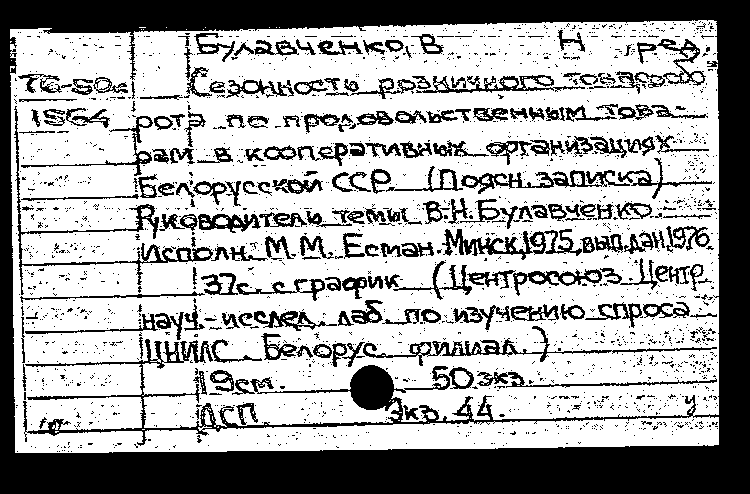 Булавченко, В Н ред.
76-80с Сезонность розничного товарообо
1564 рота по продовольственным това-
рам в кооперативных организациях
Белорусской ССР (Поясн. записка).
Руководитель темы В.Н. Булавченко.-
Исполн. М.М. Есман. Минск, 1975, вып.дан. 1976
37с. с график (Центросоюз Центр
науч.-исслед. лаб. по изучению спроса
ЦНИЛС. Белорус. филиал.)
19см. 50 экз.
ДСП Экз. 44. у